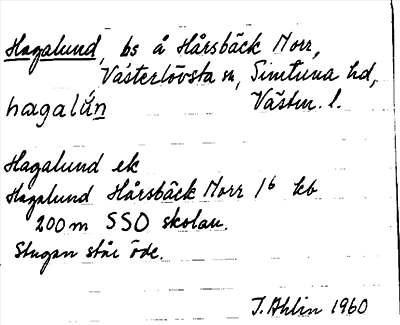 Hagalund, bs å Hårsbäck Norr,
Västerlövsta sn, Simtuna hd,
Västm. l.
hagalún
Hagalund ek
Hagalund Hårsbäck Norr 1⁶ kb
200m SSO skolan.
Stugan står öde.
J. Ahlin 1960